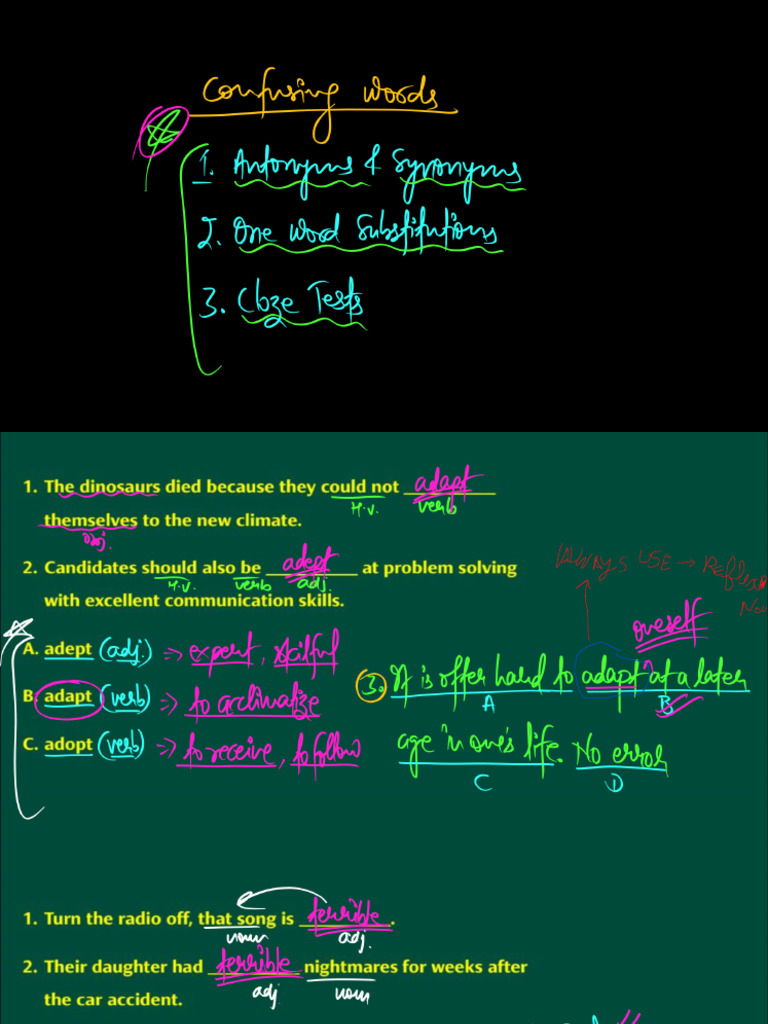 Confusing Words
1. Antonyms & Synonyms
2. One Word Substitutions
3. Cloze Tests
1. The dinosaurs died because they could not adapt
H.V. verb
themselves to the new climate.
obj.
2. Candidates should also be adept at problem solving
H.V. verb adj.
with excellent communication skills.
Always USE → Reflex
oneself
A. adept (adj.) => expert, skilful
B. adapt (verb) => to acclimatize
C. adopt (verb) => to receive, to follow
3. It is often hard to adapt ^ at a later
A B
age in one's life. No error
C D
1. Turn the radio off, that song is terrible.
noun adj.
2. Their daughter had terrible nightmares for weeks after
adj noun
the car accident.